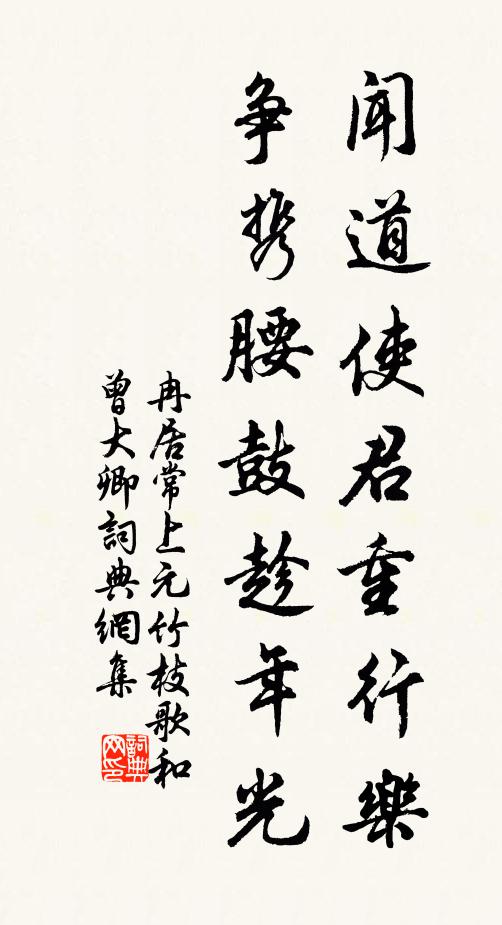 闻道使君重行樂
争携腰鼓趁年光
冉居常上元竹枝歌和
曾大卿詞典網集
詞典
网印